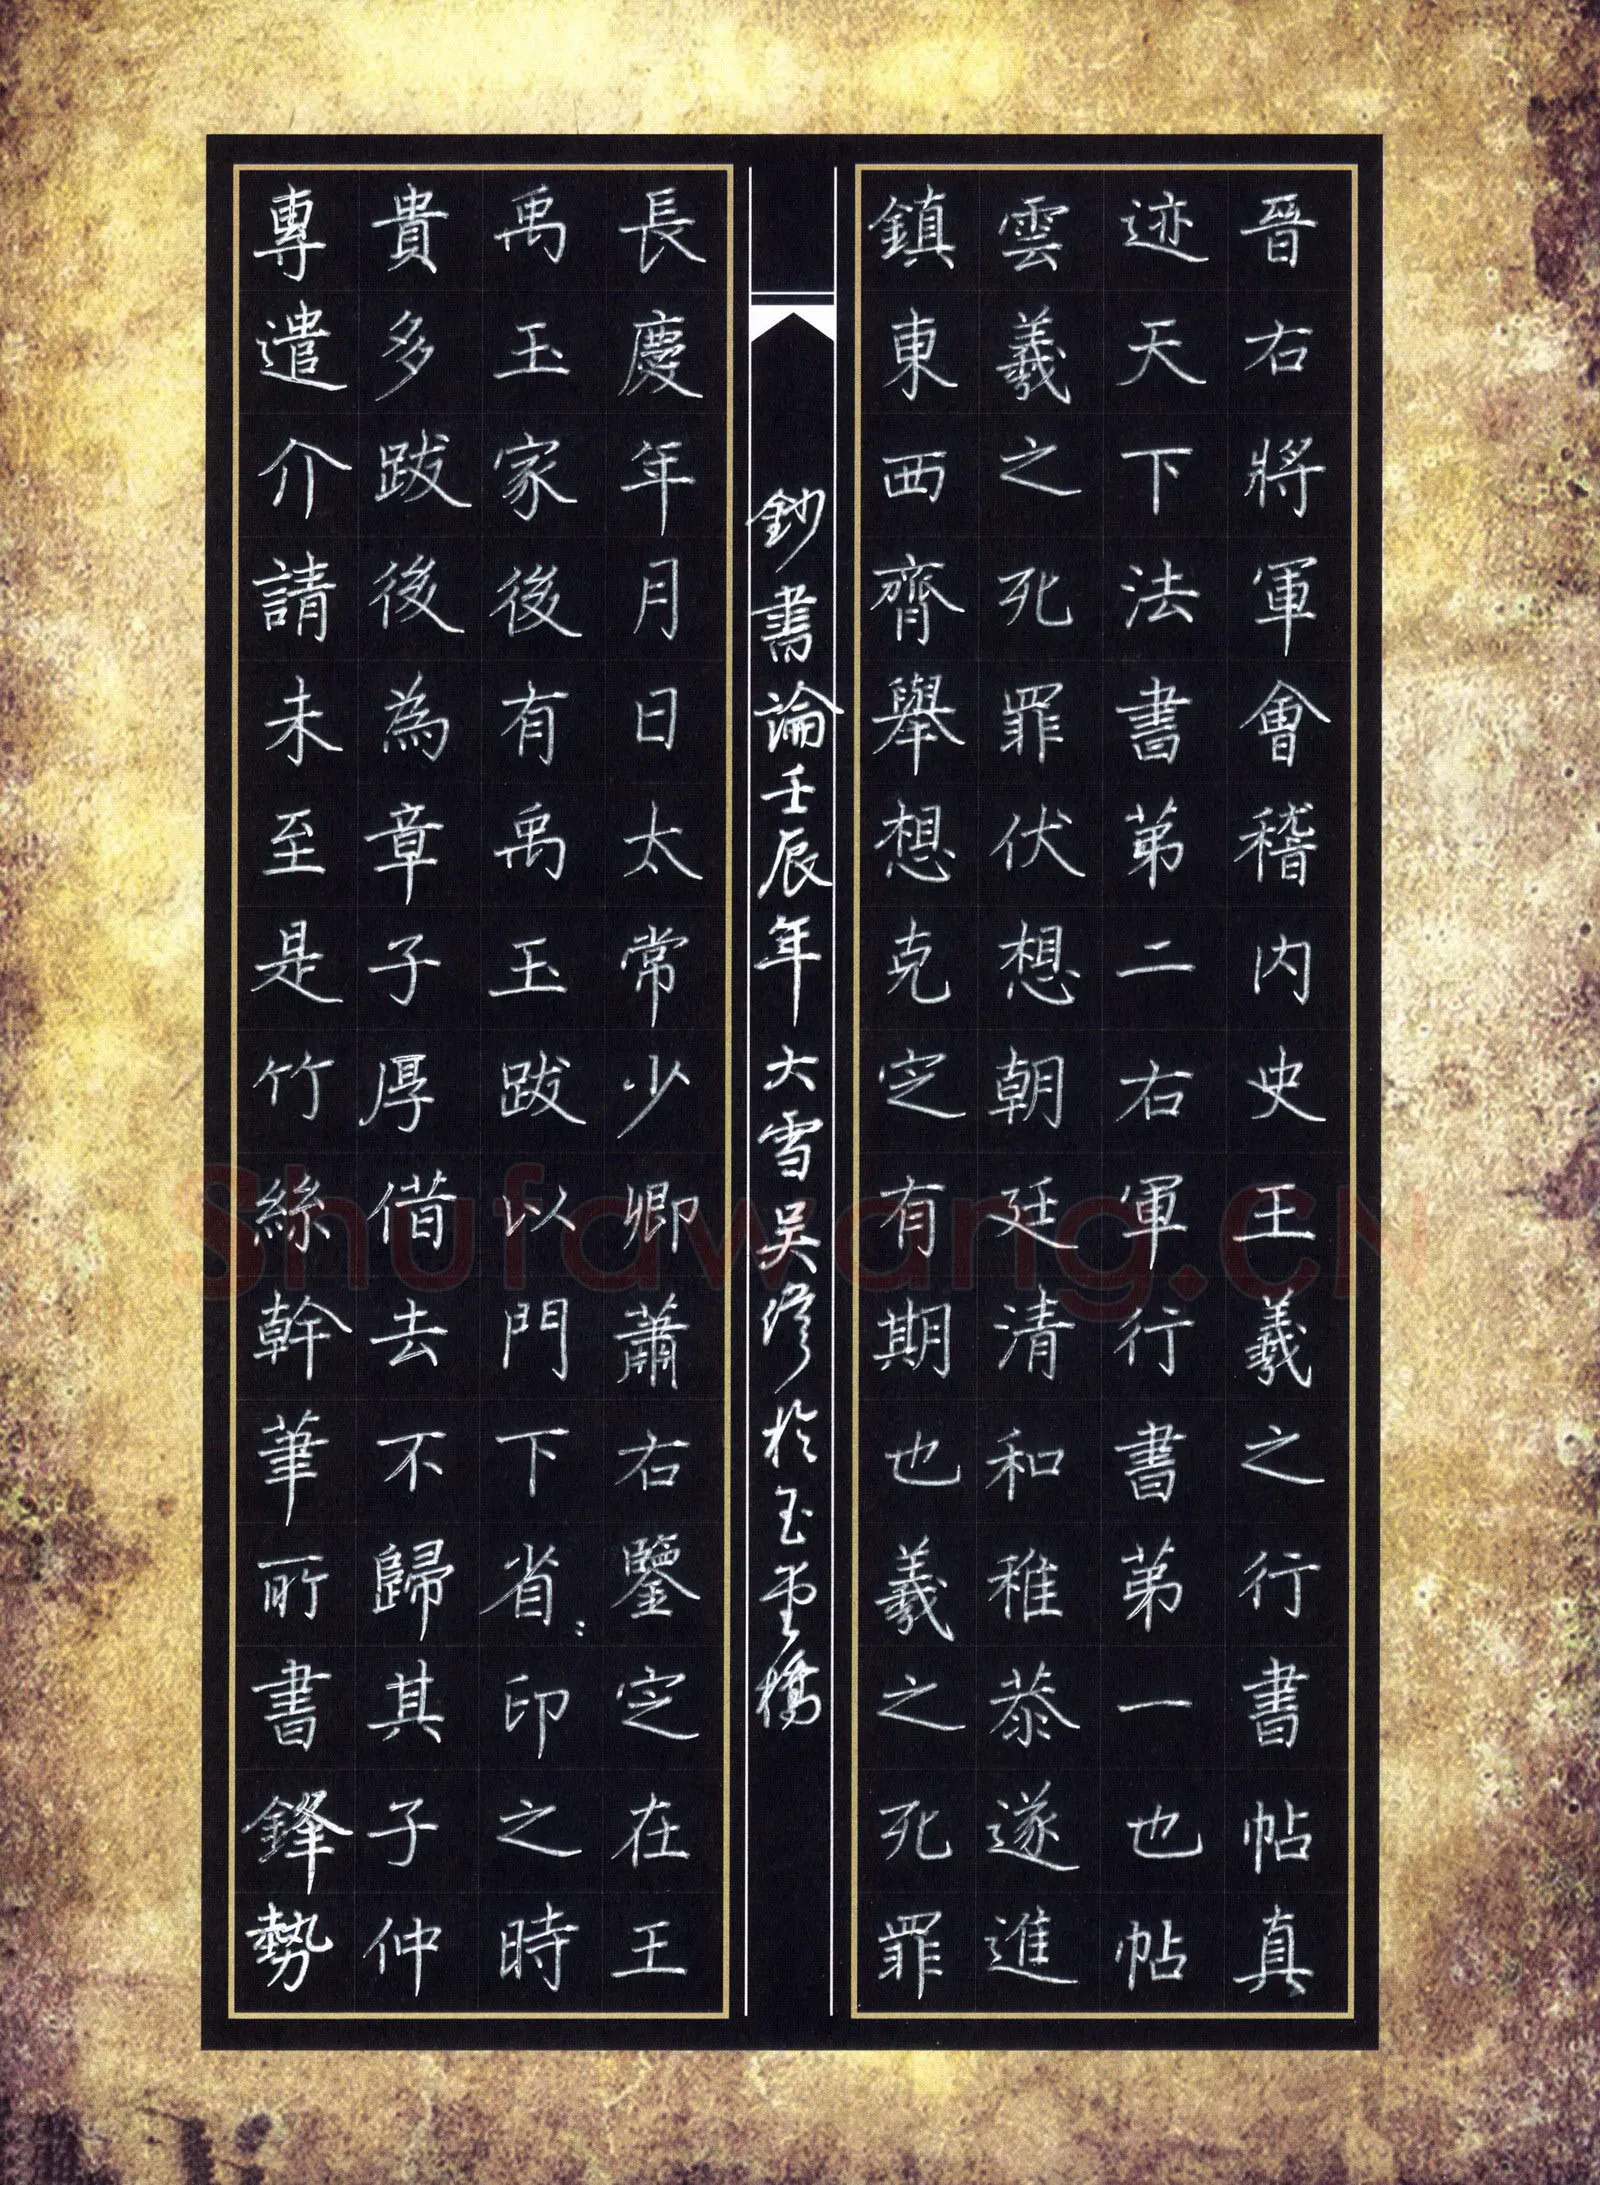 晉右將軍會稽内史王羲之行書帖真
迹天下法書第二右軍行書第一也帖
雲羲之死罪伏想朝廷清和稚恭遂進
鎮東西齊舉想克定有期也羲之死罪
鈔書論壬辰年大雪吴修於玉堂橋
長慶年月日太常少卿蕭右鑒定在王
禹玉家後有禹玉跋以門下省印之時
貴多跋後為章子厚借去不歸其子仲
專遣介請未至是竹絲幹筆所書鋒勢
Shufawang.CN